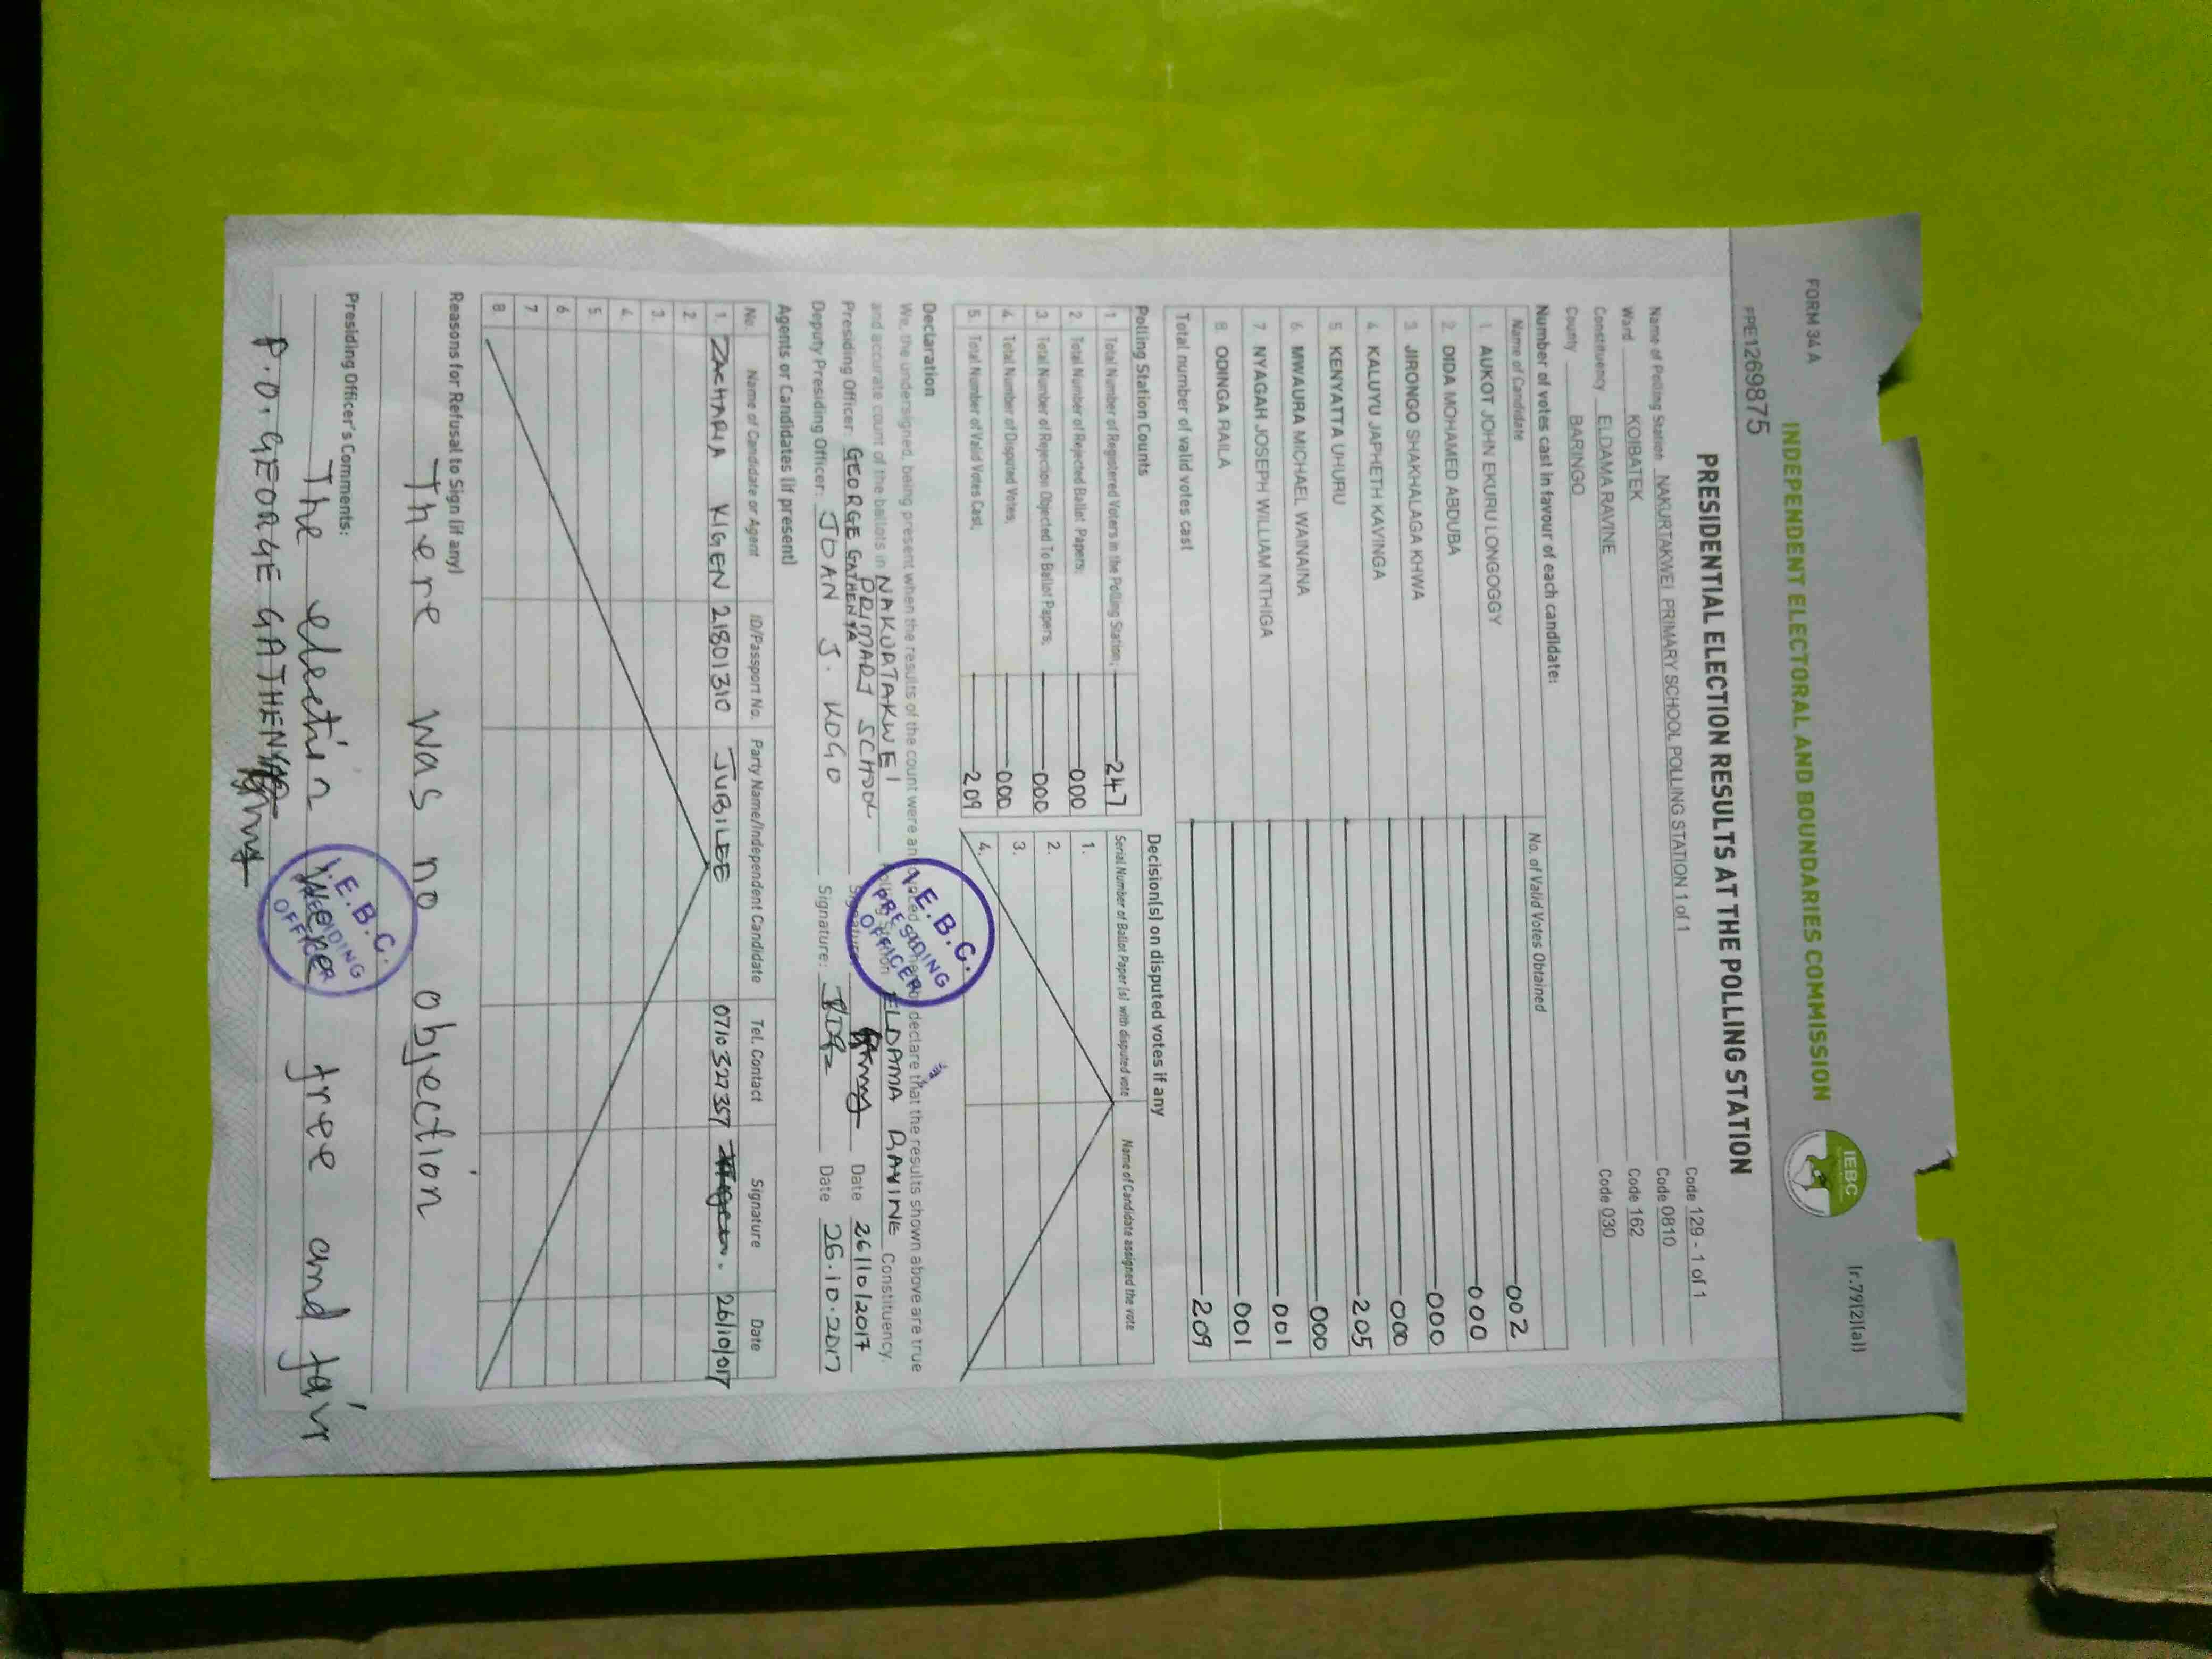 FORM 34 A
(r.79(2)(a))
INDEPENDENT ELECTORAL AND BOUNDARIES COMMISSION
IEBC
PPE1269875
PRESIDENTIAL ELECTION RESULTS AT THE POLLING STATION
Name of Polling Station NAKURTAKWEI PRIMARY SCHOOL POLLING STATION 1 of 1 Code 129 - 1 of 1
Ward KOIBATEK Code 0810
Constituency ELDAMA RAVINE Code 162
County BARINGO Code 030
Number of votes cast in favour of each candidate:
Name of Candidate No. of Valid Votes Obtained
1. AUKOT JOHN EKURU LONGOGGY 002
2. DIDA MOHAMED ABDUBA 000
3. JIRONGO SHAKHALAGA KHWA 000
4. KALUYU JAPHETH KAVINGA 000
5. KENYATTA UHURU 205
6. MWAURA MICHAEL WAINAINA 000
7. NYAGAH JOSEPH WILLIAM NTHIGA 001
8. ODINGA RAILA 001
Total number of valid votes cast 209
Polling Station Counts
1. Total Number of Registered Voters in the Polling Station; 247
2. Total Number of Rejected Ballot Papers; 000
3. Total Number of Rejection Objected To Ballot Papers; 000
4. Total Number of Disputed Votes; 000
5. Total Number of Valid Votes Cast; 209
Decision(s) on disputed votes if any
Serial Number of Ballot Paper (s) with disputed vote Name of Candidate assigned the vote
1.
2.
3.
4.
Declaration
We, the undersigned, being present when the results of the count were announced hereby declare that the results shown above are true
and accurate count of the ballots in NAKURTAKWEI PRIMARY SCHOOL Polling Station ELDAMA RAVINE Constituency.
Presiding Officer: GEORGE GATHENYA Signature: Date 26/10/2017
Deputy Presiding Officer: JOAN J. KOGO Signature: Date 26.10.2017
I.E.B.C. PRESIDING OFFICER
Agents or Candidates (if present)
No. Name of Candidate or Agent ID/Passport No. Party Name/Independent Candidate Tel. Contact Signature Date
1. ZACHARIA KIGEN 21801310 JUBILEE 0710327357 26/10/017
2.
3.
4.
5.
6.
7.
8.
Reasons for Refusal to Sign (if any)
There was no objection
Presiding Officer's Comments:
The election were free and fair
P.O. GEORGE GATHENYA
I.E.B.C. PRESIDING OFFICER